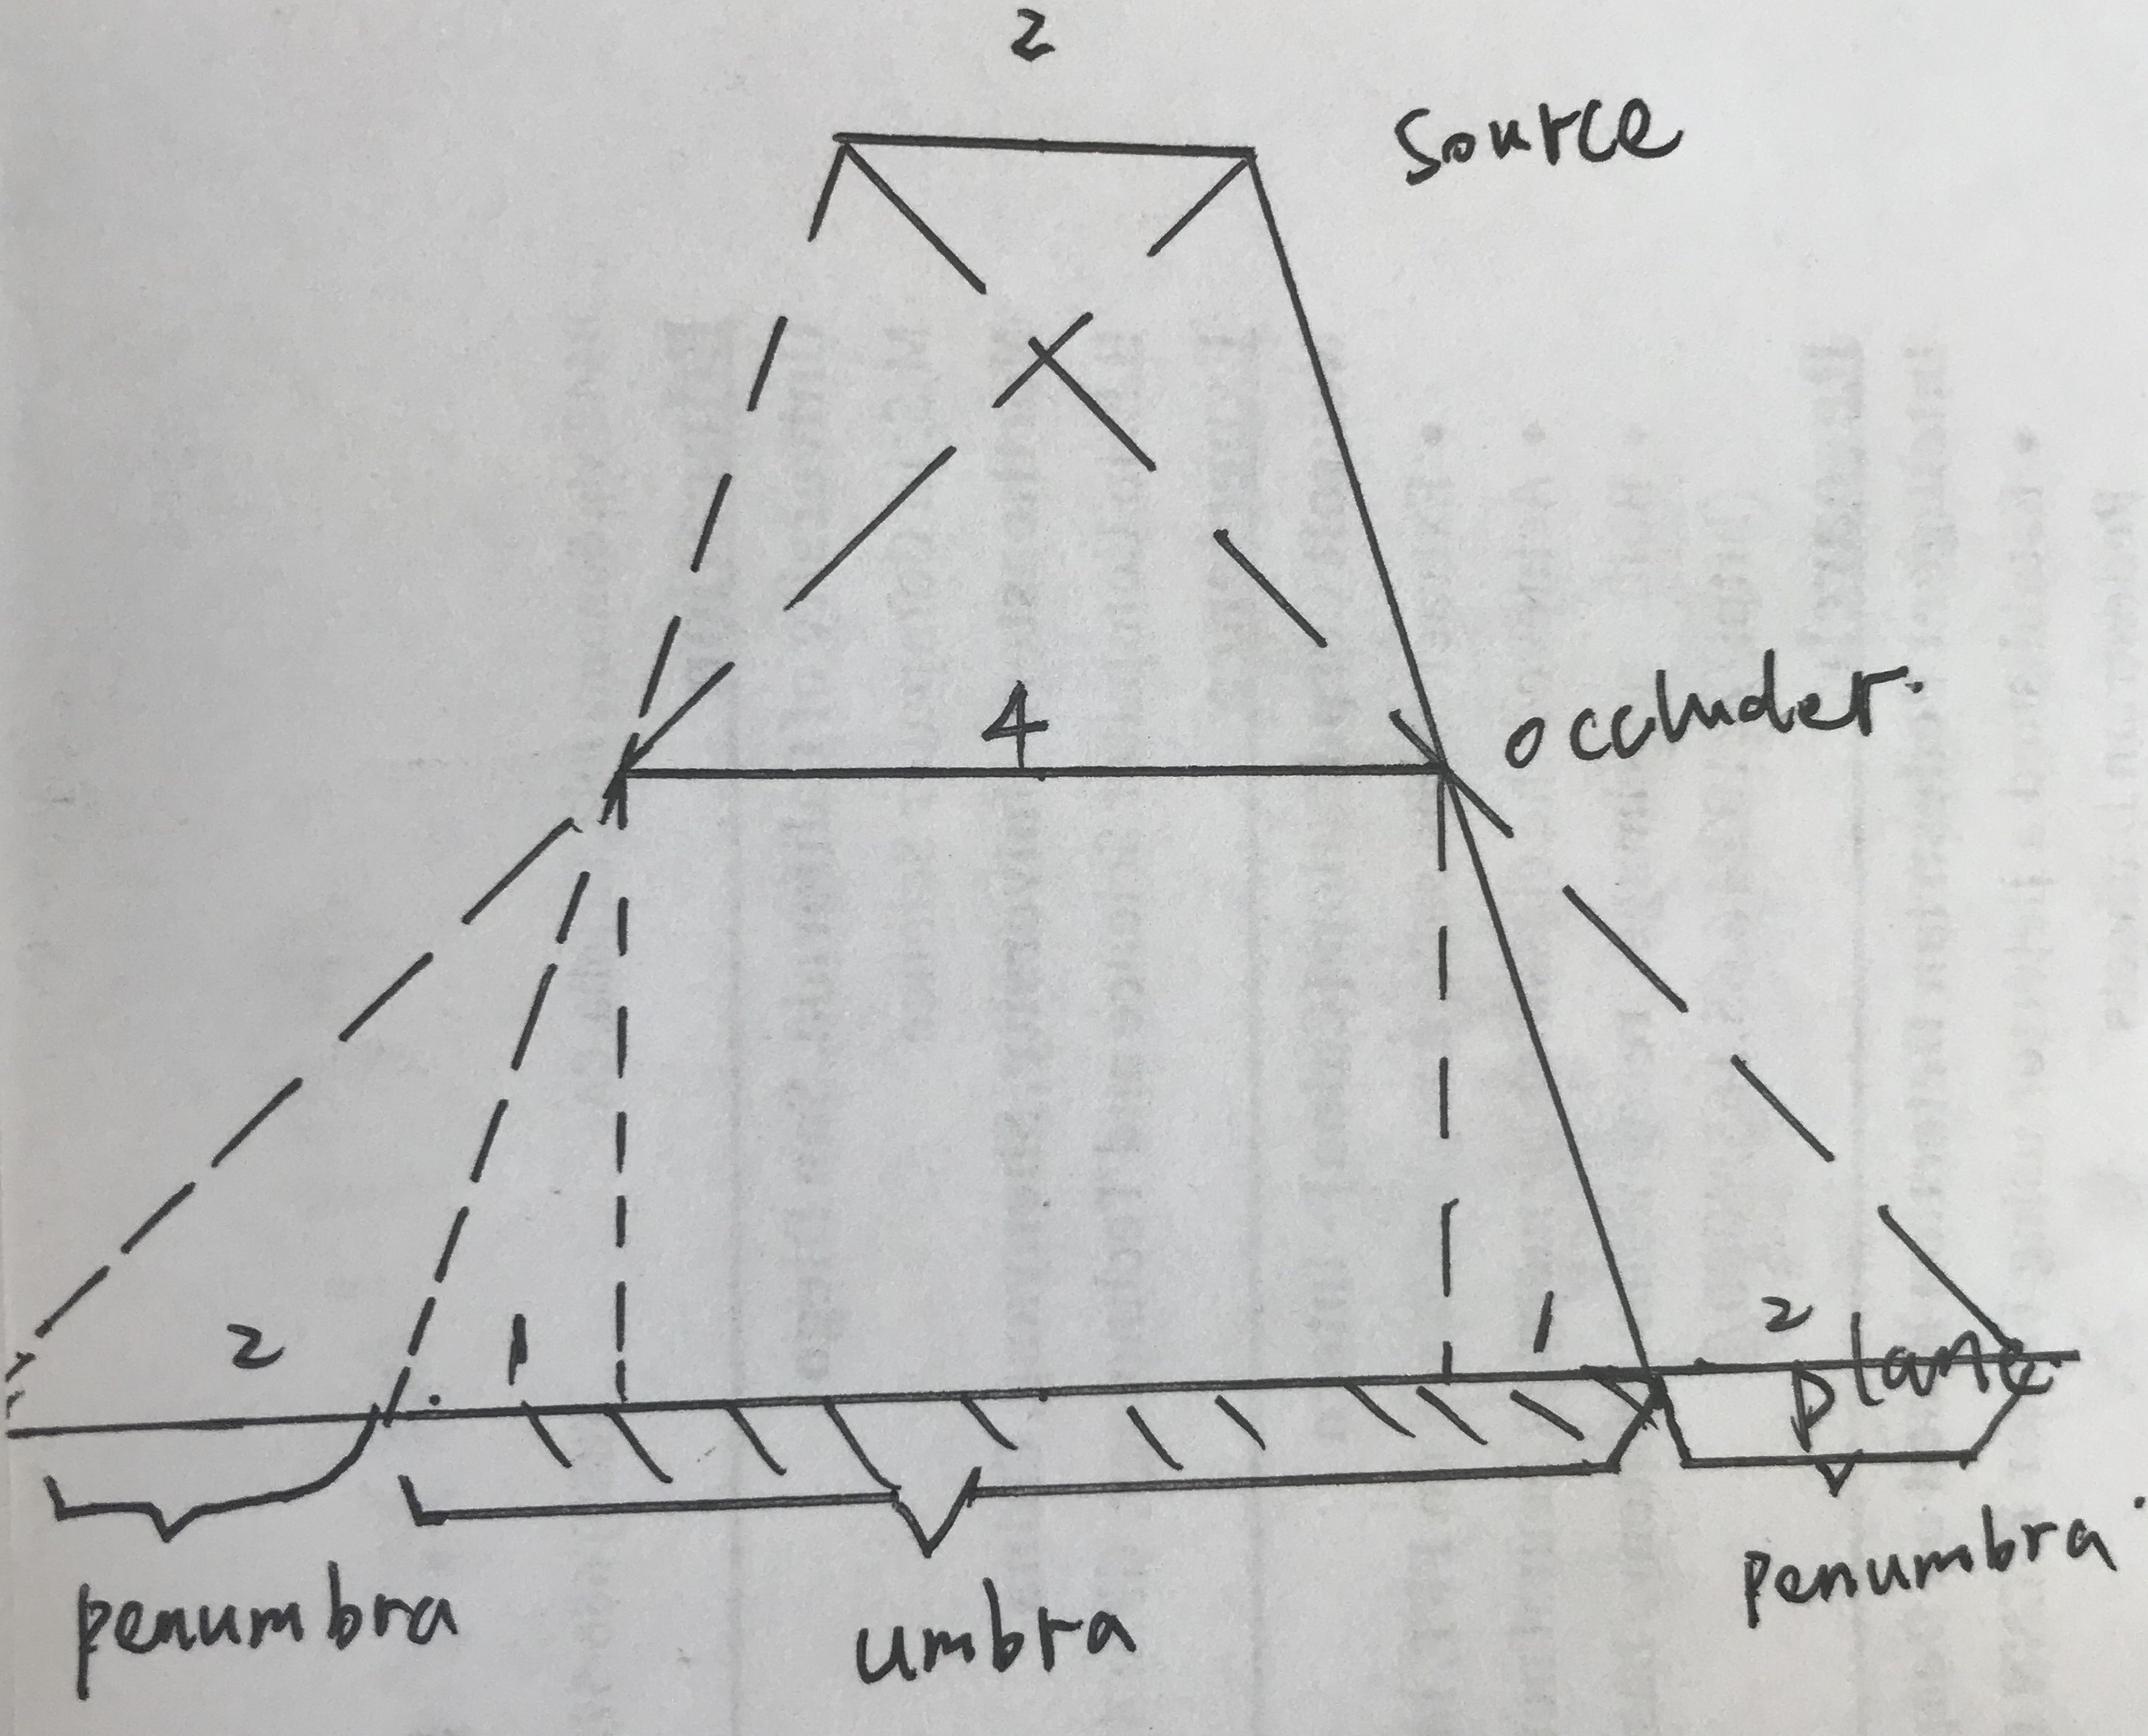 2
Source
4
occluder.
2
1
1
2
plane
penumbra
umbra
penumbra